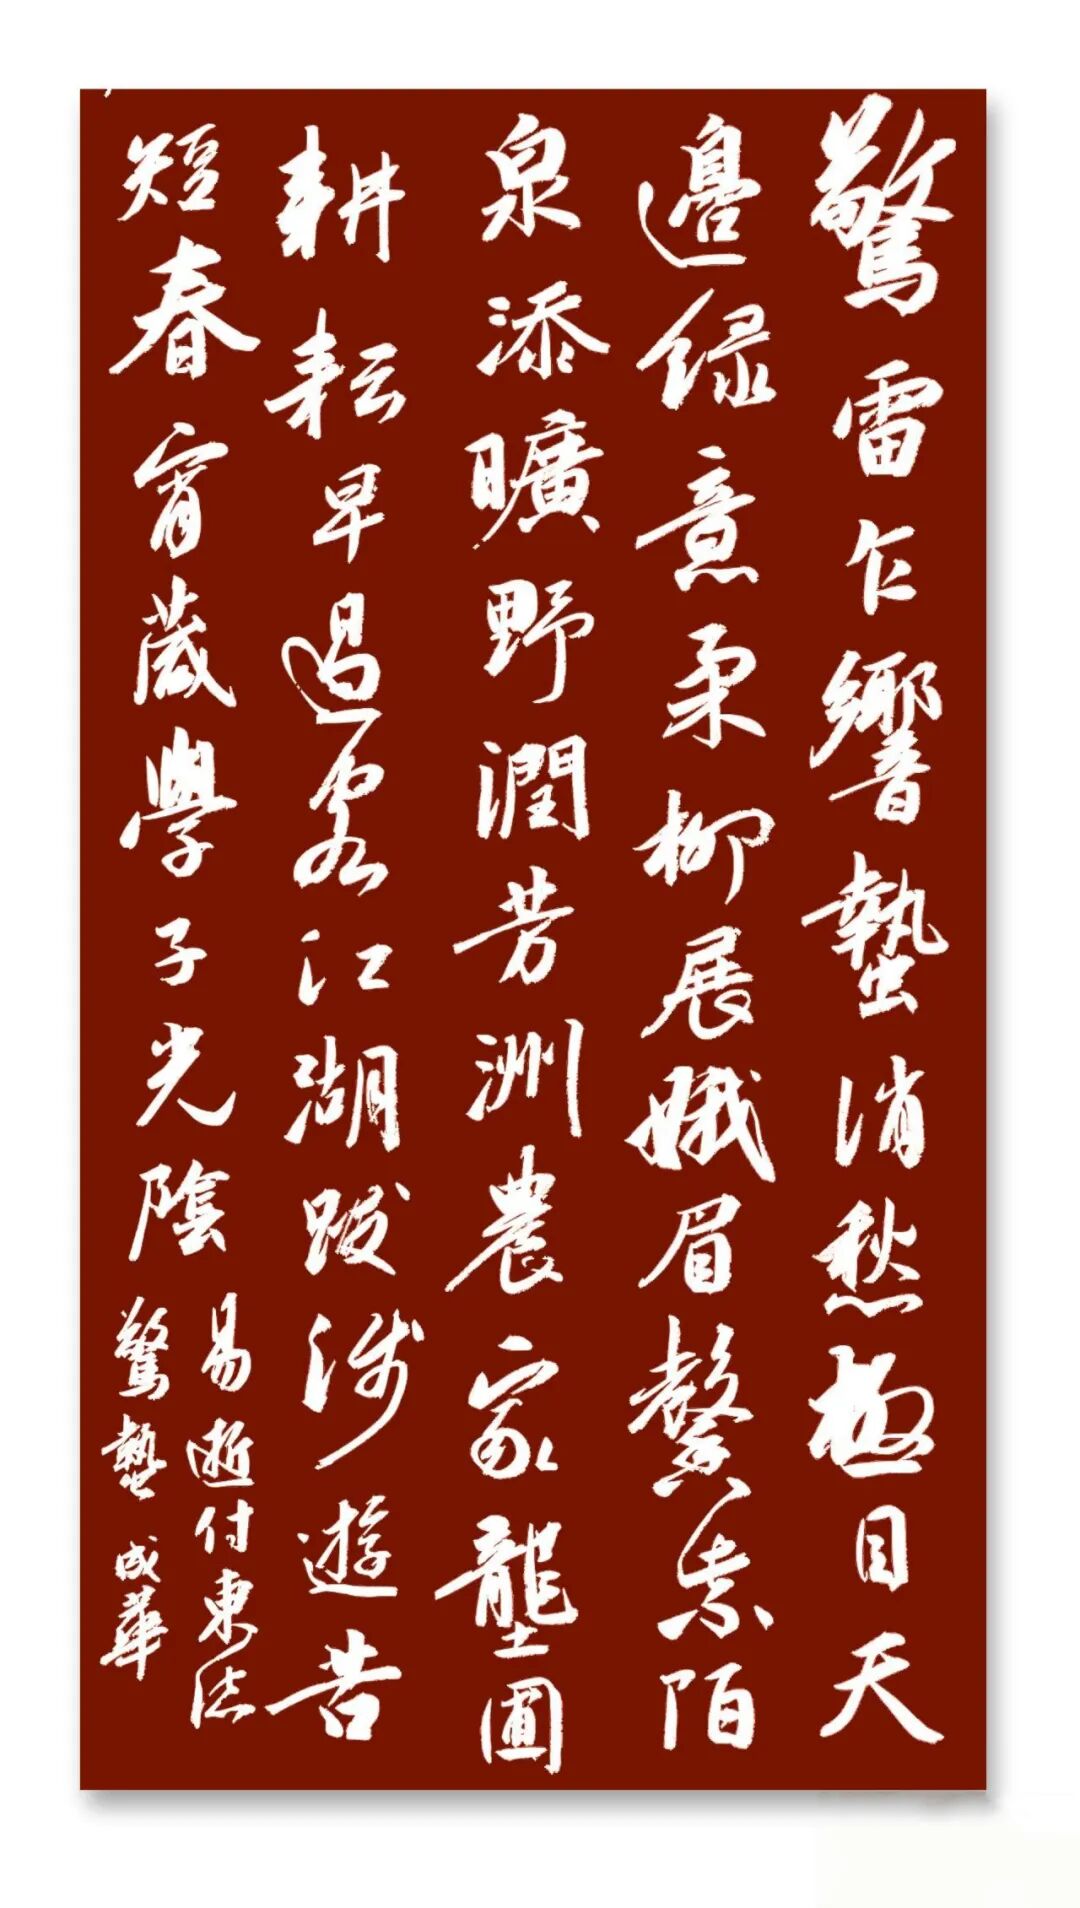 驚雷乍響蟄消愁極目天
邊綠意柔柳展娥眉馨紫陌
泉添曠野潤芳洲農家壟圃
耕耘早過客江湖跋涉遊苦
短春宵箴學子光陰
易逝付東流
驚蟄 成華